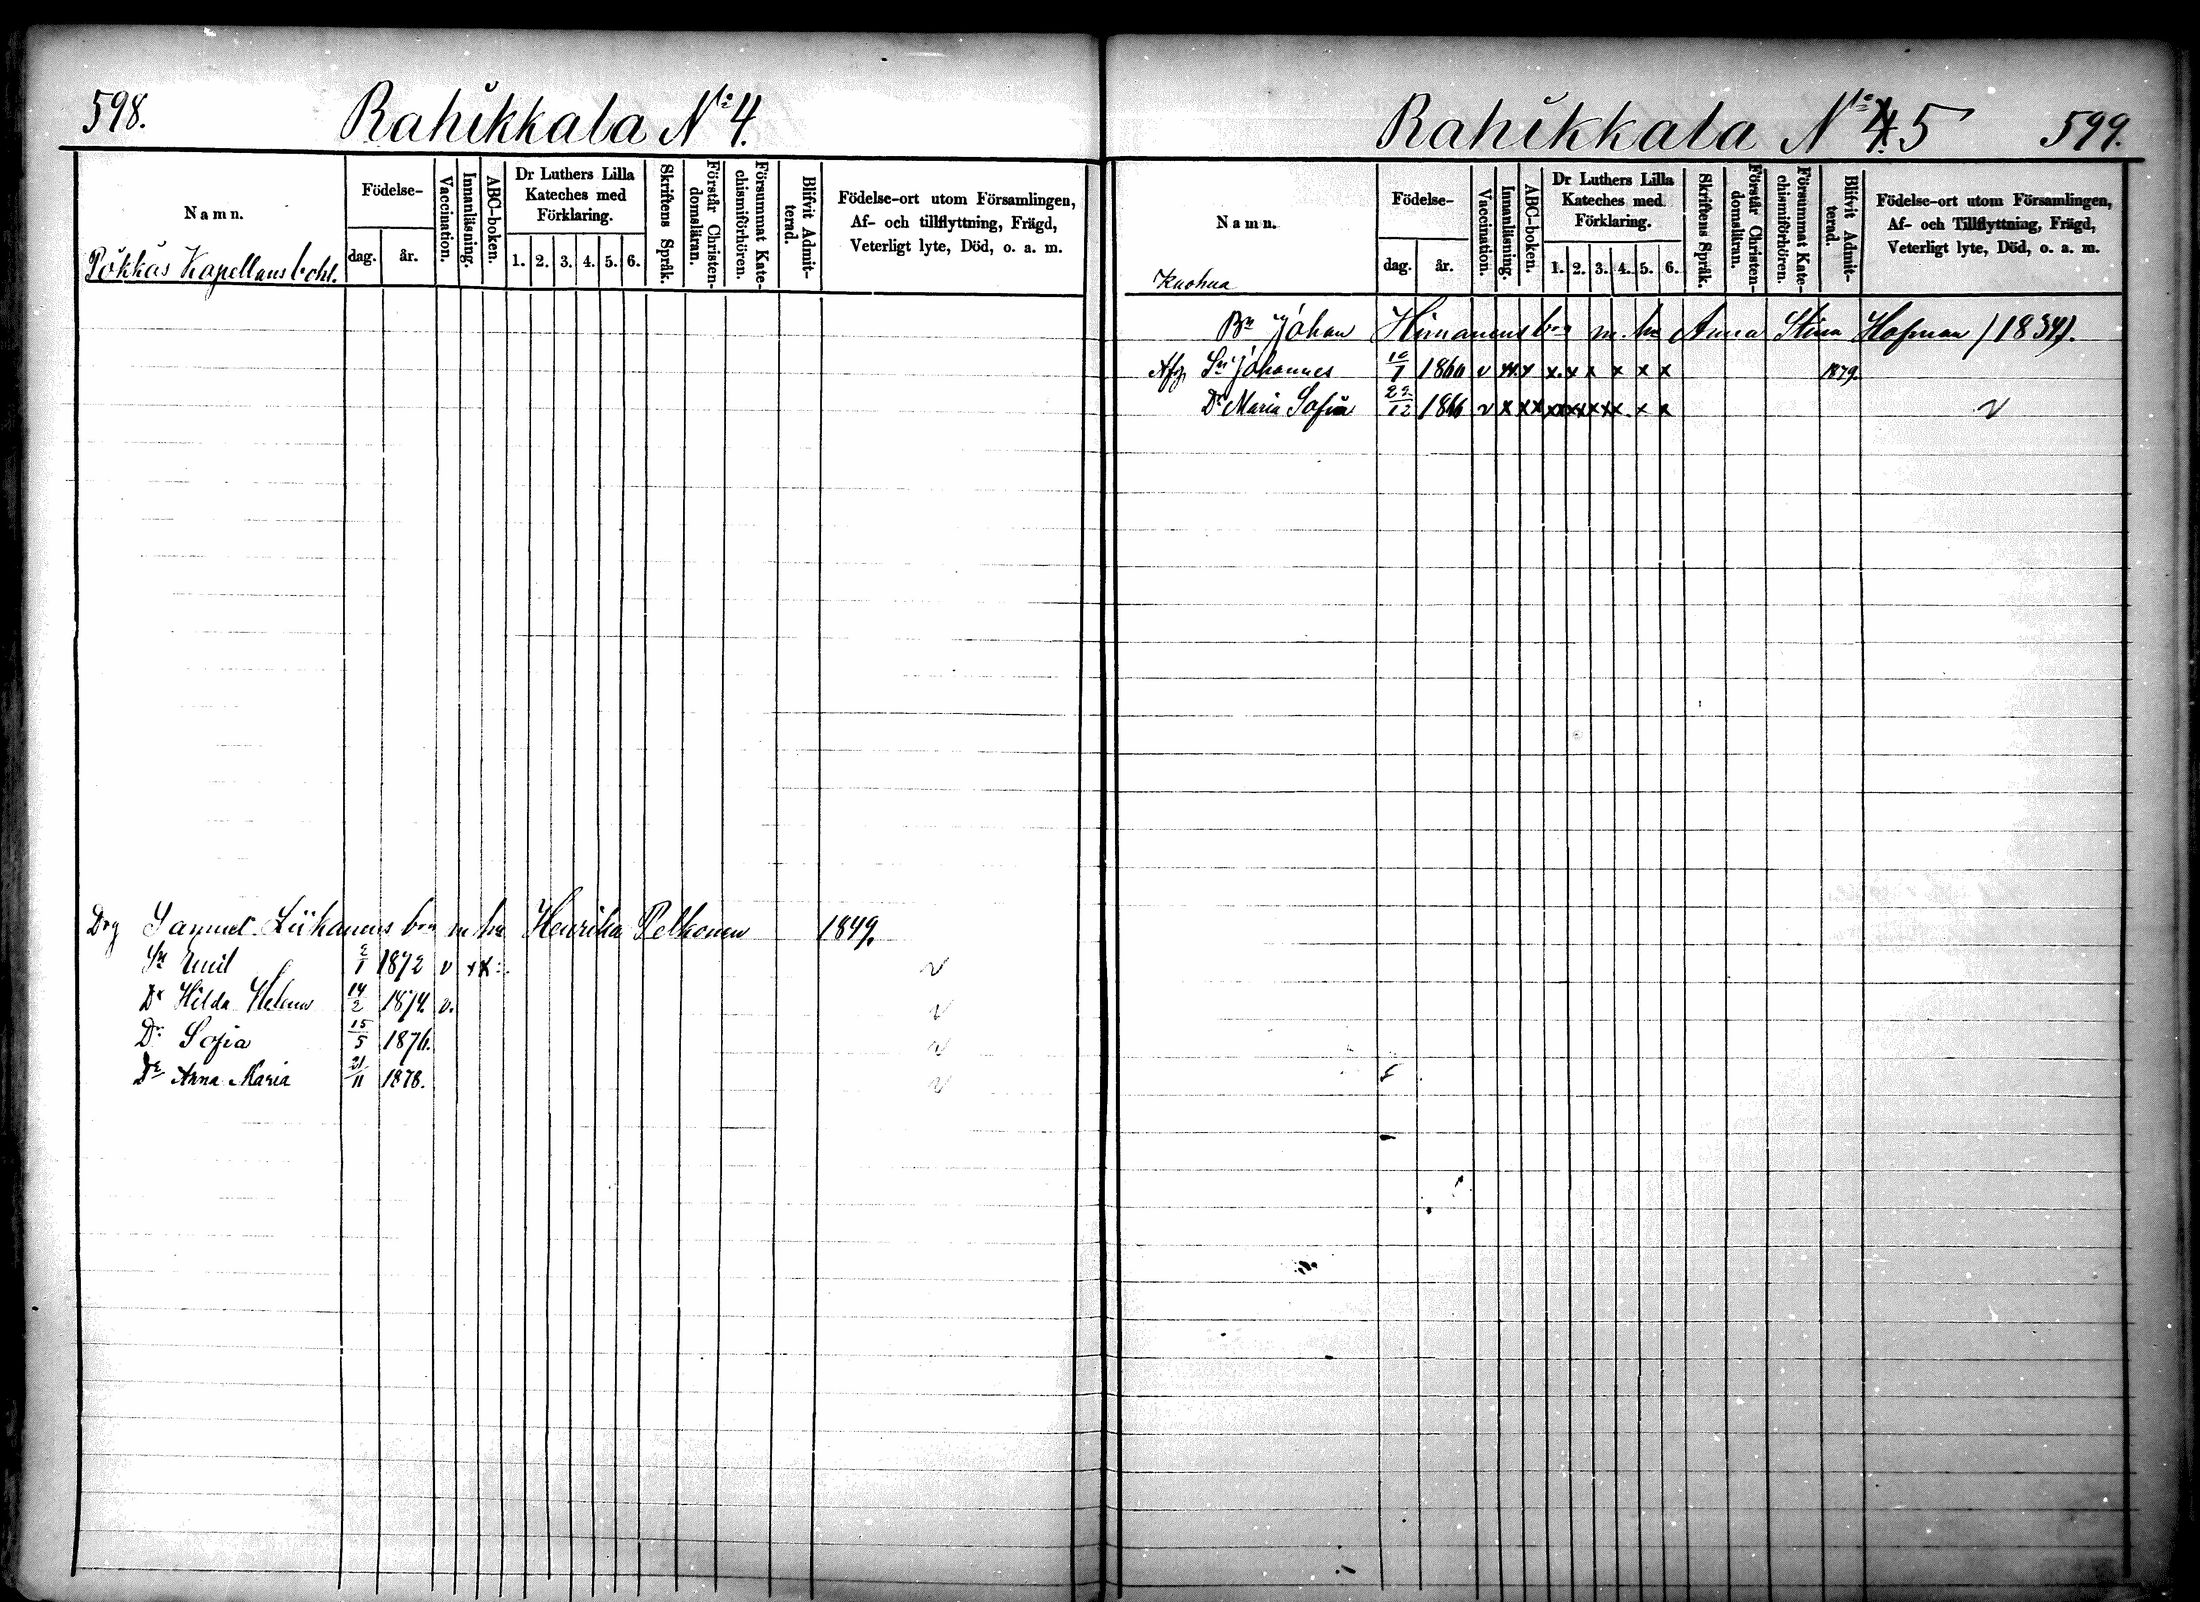 598.
Rahikkala No 4.
Namn.
Födelse-
dag. år.
Vaccination.
Innanläsning.
ABC-boken.
Dr Luthers Lilla
Kateches med
Förklaring.
1. 2. 3. 4. 5. 6.
Skriftens Språk.
Förstår Christen-
domsläran.
Försummat Kate-
chismiförhören.
Blifvit Admit-
terad.
Födelse-ort utom Församlingen,
Af- och tillflyttning, Frägd,
Veterligt lyte, Död, o. a. m.
Pökkäs Kapellansbohl.
Drg Samuel m hu Henrika Pelkonen 1849.
Sn Emil 2/1 1872 v x x
Dr Hilda Helena 14/2 1874 v. v
Dr Sofia 15/5 1876. v
Dr Anna Maria 21/11 1878. v
Rahikkala No 4. 5
599.
Namn.
Födelse-
dag. år.
Vaccination.
Innanläsning.
ABC-boken.
Dr Luthers Lilla
Kateches med
Förklaring.
1. 2. 3. 4. 5. 6.
Skriftens Språk.
Förstår Christen-
domsläran.
Försummat Kate-
chismiförhören.
Blifvit Admit-
terad.
Födelse-ort utom Församlingen,
Af- och Tillflyttning, Frägd,
Veterligt lyte, Död, o. a. m.
Kuohua
Bn Johan m. hu Anna Stina Hofman
Sn Johannes 1860 v x x x x x x x 1879.
Dr Maria Sofia 22/12 1866 v x x x x x x x x x x x v